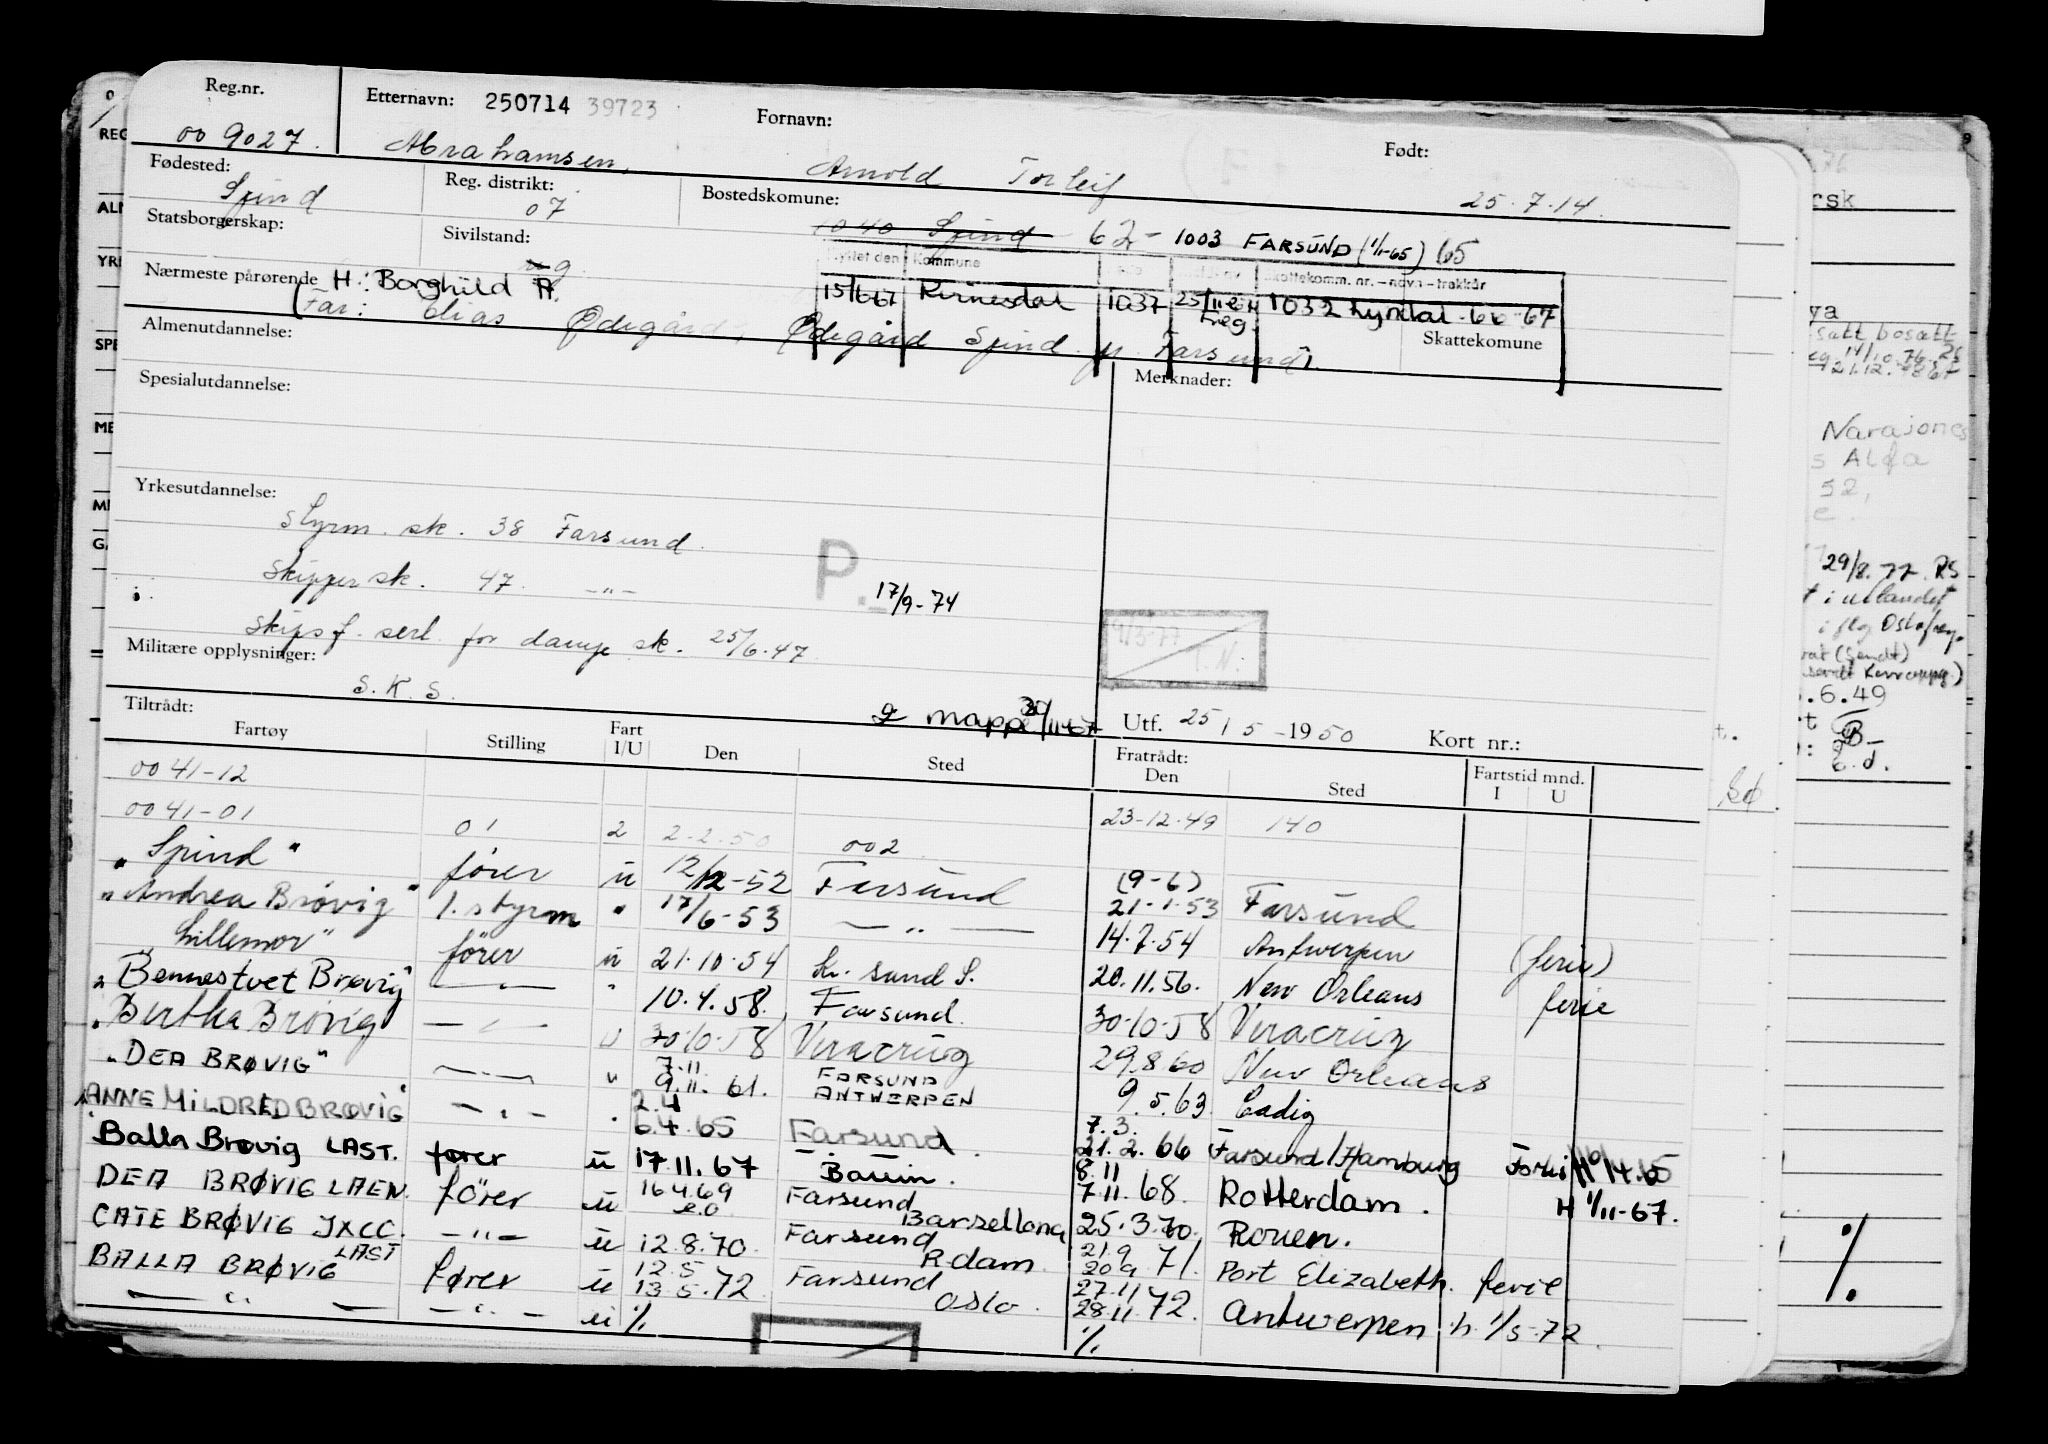 Reg.nr. Etternavn: 250714 39723 Fornavn: Født:
00 9027. Abrahamsen, Arnold Torleif 25.7.14.
Fødested: Reg. distrikt: Bostedskomune:
Spind 07 1040 Spind 62- 1003 FARSUND (1/1-65) 65
Statsborgerskap: Sivilstand:
ug
Kommune Skattekomm. nr. - navn - trekkår
15/667 Kvinesdal 1037 25/11 1032 Lyngdal 66-67
Nærmeste pårørende H: Borghild A.
(Far: Elias Ødegård, Ødegård Spind pr. Farsund).
Almenutdannelse: Skattekomune
Spesialutdannelse: Merknader:
Yrkesutdannelse:
Styrm. sk. 38 Farsund.
Skipper sk. 47. -"-
P. 17/9-74
Skipsf. serl. for damp sk. 25/6.47
9/3-77 T.N.
Militære opplysninger:
S.K.S.
2 mappe 30/11-67 Utf. 25/5-1950 Kort nr.:
Tiltrådt: Fratrådt:
Fartøy Stilling Fart I/U Den Sted Den Sted Fartstid mnd. I U
00 41-12 23-12-49 140
00 41-01 01 2 2-2-50 002
"Spind" fører u 12/12-52 Farsund (9-6) 21-1-53 Farsund
"Andrea Brøvig" 1. styrm " 17/6-53 -"- 14.7.54 Antwerpen (ferie)
"Lillemor" fører u 21.10.54 Kr. sund S. 20.11.56. New Orleans ferie
"Bennestvet Brøvig" -"- " 10.4.58. Farsund. 30.10.58 Veracruz
"Bertha Brøvig -"- u 30.10.58 Veracruz 29.8.60 New Orleans
"DEA BRØVIG" -"- u 7.11 9.11.61. FARSUND ANTWERPEN 9.5.63. Cadiz
"ANNE MILDRED BRØVIG" -"- " 2.4 6.4.65 Farsund. 7.3. 21.2.66 Farsund/Hamburg
Balla Brøvig LAST. fører u 17.11.67 8.11 7.11.68. Rotterdam. H 1/11-67.
DEA BRØVIG LAEN. fører u 16.4.69 Farsund Barsellona 25.3.70. Rouen.
CATE BRØVIG JXCC. -"- u 12.8.70. Farsund R.dam 21.9 20.9 71. Port Elizabeth. ferie
BALLA BRØVIG LAST fører u 12.5 13.5.72 Farsund Oslo. 27.11 28.11.72. Antwerpen h. 1/5-72.
-"- -"- u %. %.
Narajones
s Alfa
52,
29/8.77. RS
t i utlandet
.6.49
%.